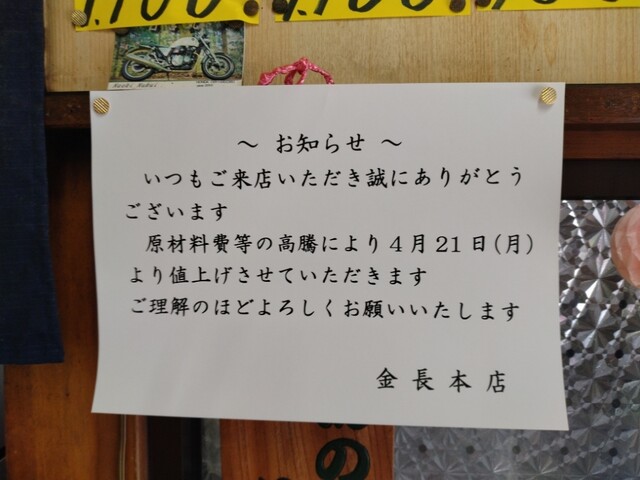 1,100.
1,100.
～ お知らせ ～
いつもご来店いただき誠にありがとう
ございます
原材料費等の高騰により４月２１日(月)
より値上げさせていただきます
ご理解のほどよろしくお願いいたします
金長本店
の